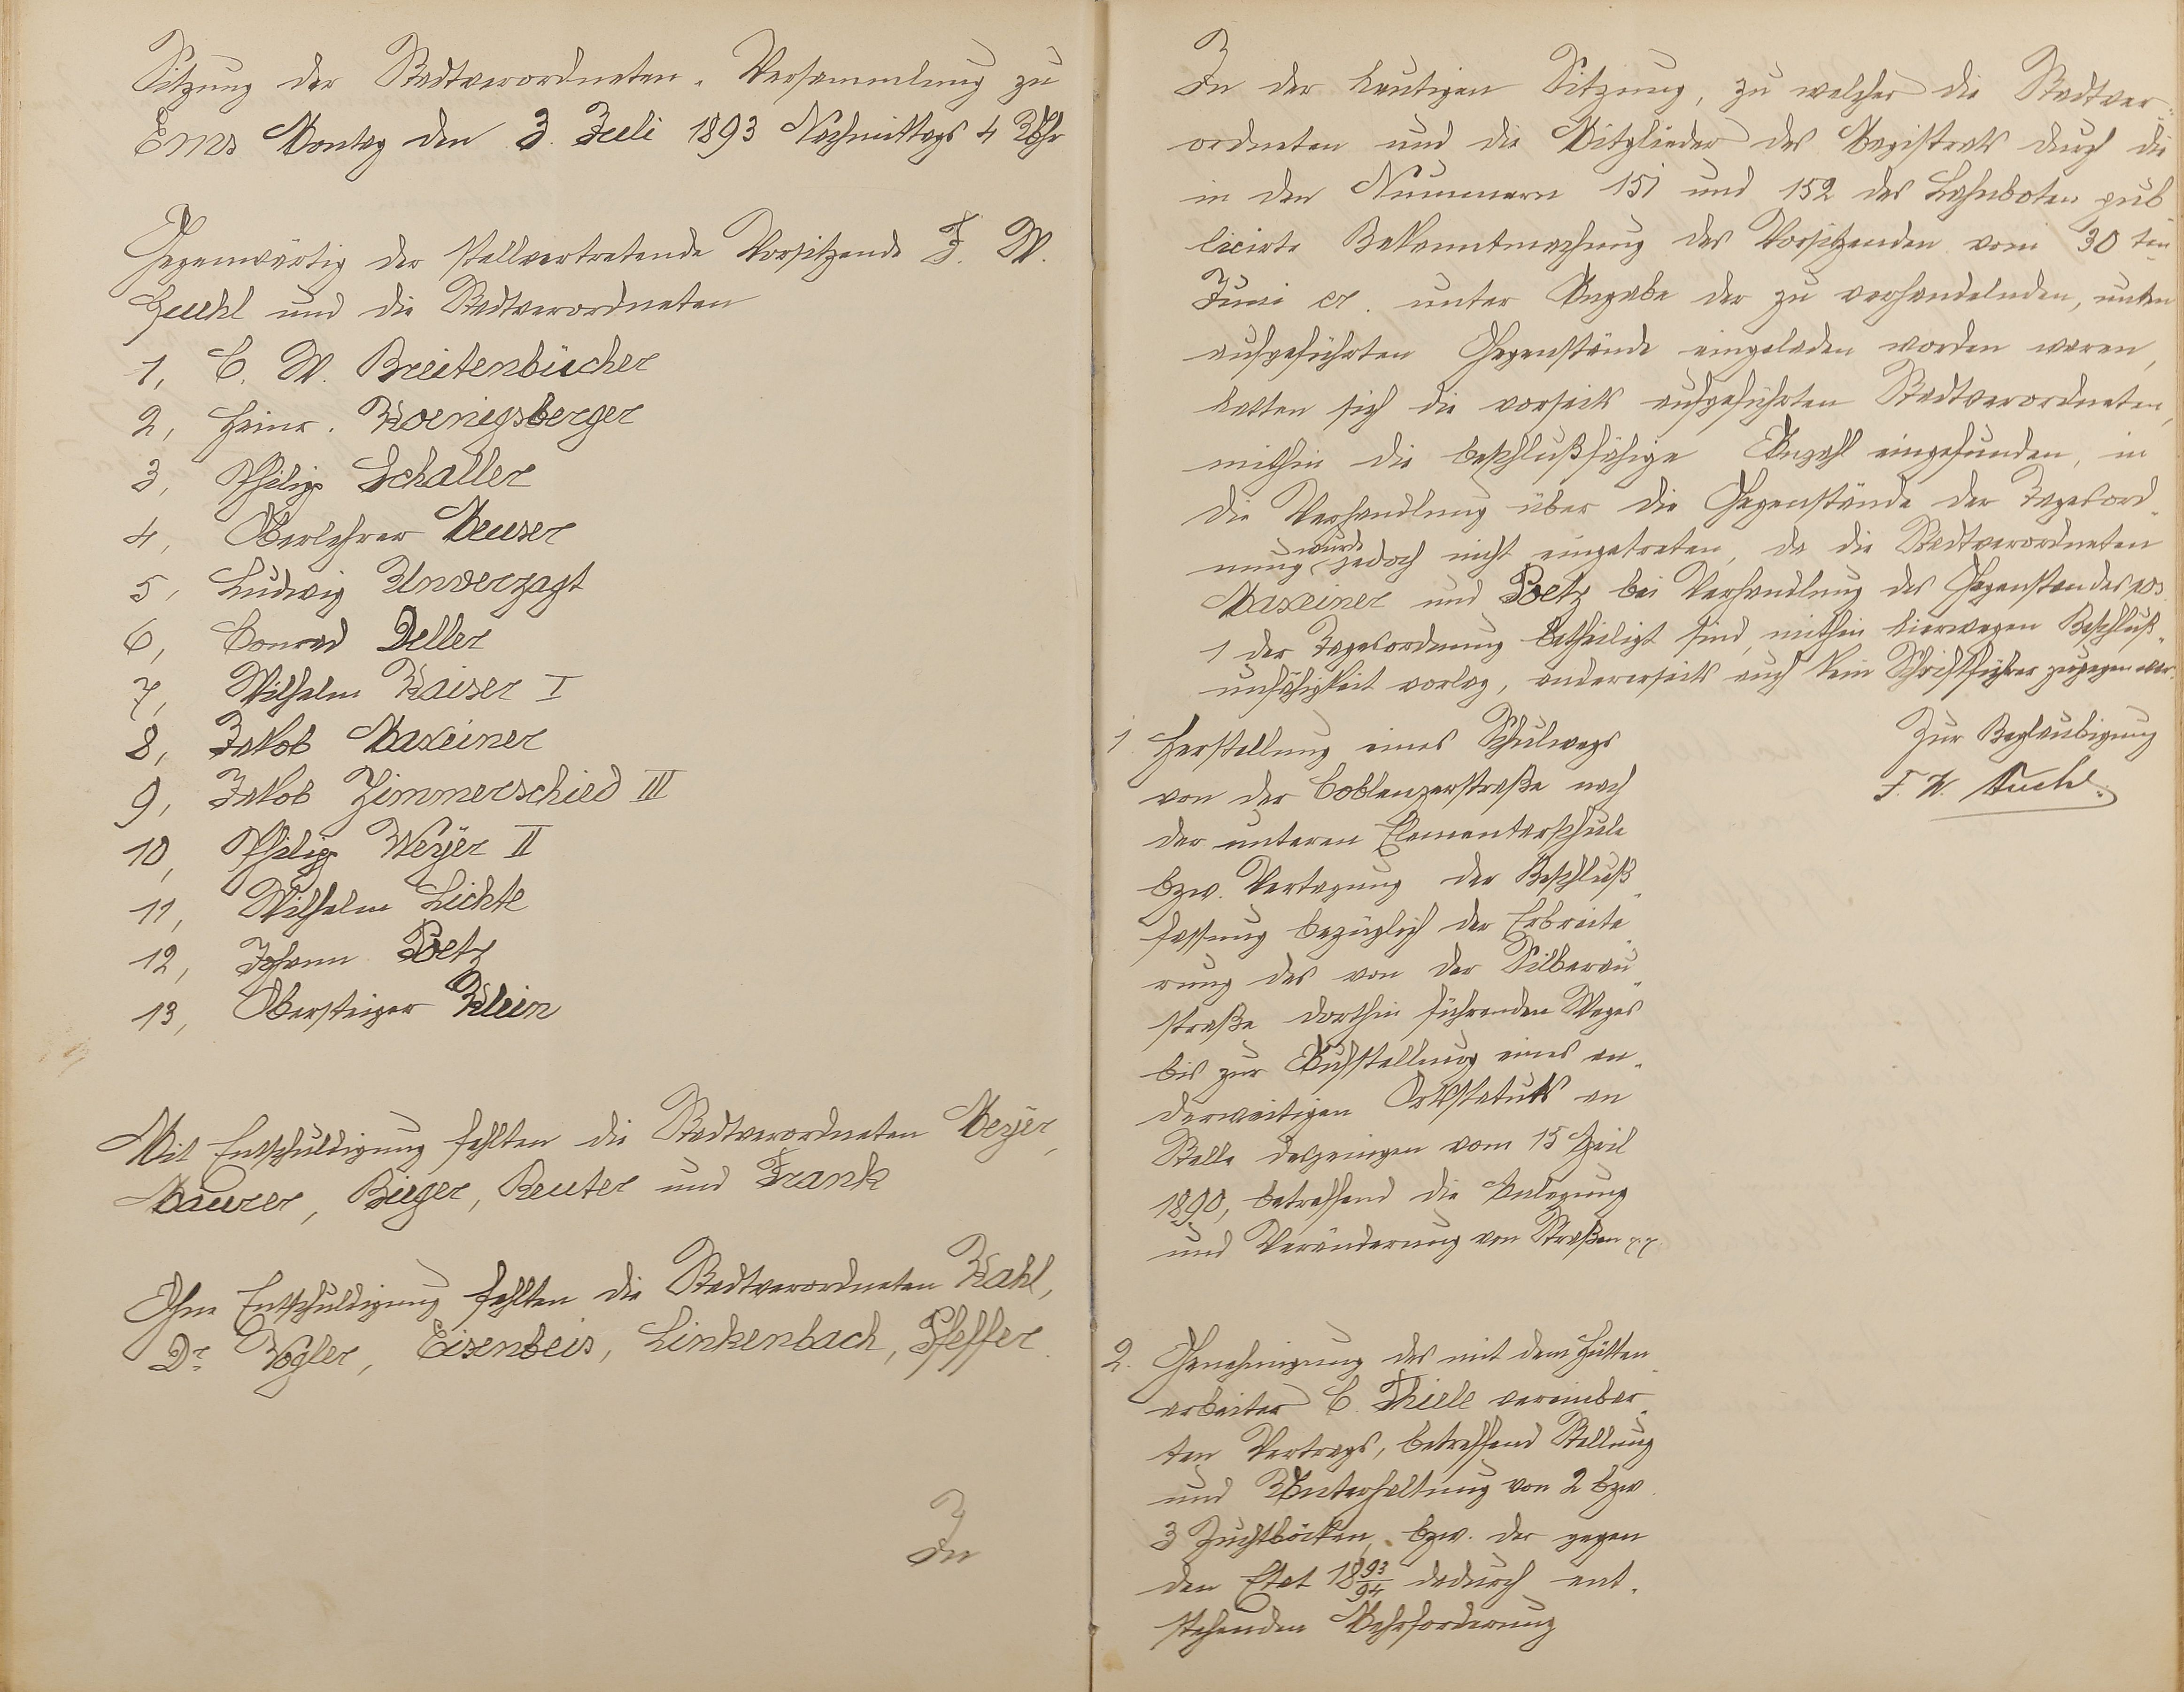 Sitzung der Stadtverordneten-Versammlung zu
Ems Montag den 3. Juli 1893 Nachmittags 4 Uhr
Gegenwärtig der stellvertretende Vorsitzende F. W.
und die Stadtverordneten
1, C. W. Breitenbücher
2, Heinr. Koenigsberger
3, Philipp Schaller
4, Oberlehrer Meuser
5, Ludwig Unverzagt
6, Conrad Deller
7, Wilhelm Kaiser I
8, Jakob Maxeiner
9, Jakob Zimmerschied III
10, Philipp Weyer II
11, Wilhelm Lichte
12, Johann Poetz
13, Obersteiger Klein
Mit Entschuldigung fehlten die Stadtverordneten Meyer,
Maurer, Büger, Reuter und Frank
Ohne Entschuldigung fehlten die Stadtverordneten Kahl,
Dr. Vogler, Eisenbeis, Linkenbach, Pfeffer.
In
In der heutigen Sitzung, zu welcher die Stadtver-
ordneten und die Mitglieder des Magistrats durch die
in den Nummern 151 und 152 des Lahnboten pub-
licirte Bekanntmachung des Vorsitzenden vom 30ten
Juni cr. unter Angabe der zu verhandelnden, unten
aufgeführten Gegenstände eingeladen worden waren,
hatten sich die vorseits aufgeführten Stadtverordneten,
mithin die beschlußfähige Anzahl eingefunden, in
die Verhandlung über die Gegenstände der Tagesord-
nung wurde jedoch nicht eingetreten, da die Stadtverordneten
Maxeiner und Poetz bei Verhandlung des Gegenstandes pos.
1 der Tagesordnung betheiligt sind, mithin hierwegen Beschluß-
unfähigkeit vorlag, andererseits auch kein Schriftführer zugegen war.
Zur Beglaubigung
F. W.
1. Herstellung eines Schulwegs
von der Coblenzerstraße nach
der unteren Elementarschule
bzw. Vertagung der Beschluß-
fassung bezüglich der Erbreite-
rung des von der Silberau-
straße dorthin führenden Weges
bis zur Aufstellung eines an-
derweitigen Ortsstatuts an
Stelle desjenigen vom 15 April
1890, betreffend die Anlegung
und Veränderung von Straßen pp.
2. Genehmigung des mit dem Hütten-
arbeiter C. Thiele vereinbar-
ten Vertrags, betreffend Stellung
und Unterhaltung von 2 bzw.
3 Zuchtböcken, bzw. der gegen
den Etat 1893/94 dadurch ent-
stehenden Mehrforderung